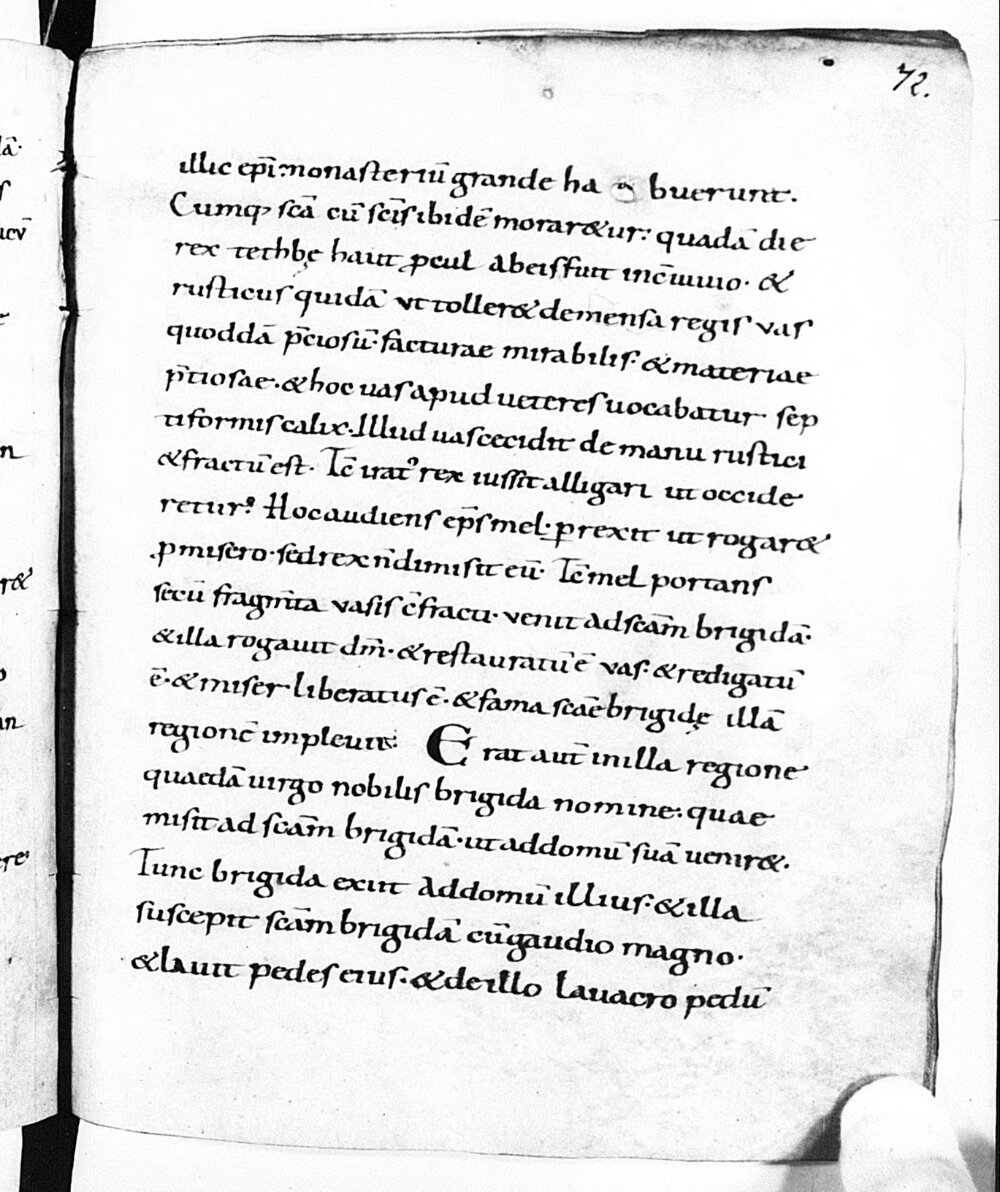 72.
illic epī. monasteriū grande ha buerunt.
Cumq; scā cū scīs ibidē morar&ur: quadā die
rex tethbę haut ꝓcul abeis fuit in c̄uiuio. &
rusticus quidā ut toller& demensa regis vas
quoddā p̄ciosū. facturae mirabilis. & materiae
p̄tiosae. & hoc uas apud ueteres uocabatur. sep
tiformis calix. Illud uas cecidit de manu rustici
& fractū est. Tc̄ irat᾽ rex iussit alligari ut occide
retur. Hoc audiens ep̄s mel. ꝑrexit ut rogar&
ꝓ misero. sed rex n̄ dimisit eū. Tc̄ mel portans
secū fragm̄ta vasis c̄fracti. venit ad scām brigidā.
& illa rogauit dm̄. & restauratū ē vas. & redigatū
ē. & miser liberatus ē. & fama scāe brigidę illā
regionē impleuit. Erat aut̄ in illa regione
quaedā uirgo nobilis brigida nomine. quae
misit ad scām brigidā. ut addomū suā uenir&.
Tunc brigida exiit addomū illius. & illa
suscepit scām brigidā cū gaudio magno.
& lauit pedes eius. & de illo lauacro pedū